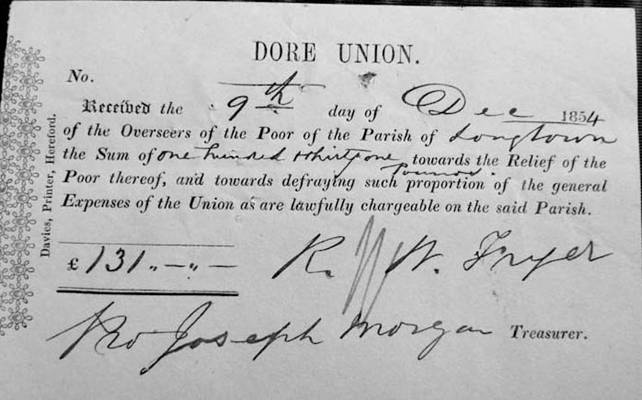 DORE UNION.
No.
Received the 9th day of Dec 1854
of the Overseers of the Poor of the Parish of Longtown
the Sum of one hundred & thirty one Pounds. towards the Relief of the
Poor thereof, and towards defraying such proportion of the general
Expenses of the Union as are lawfully chargeable on the said Parish.
£131 „ — „ —
R. W. Fryer
Pro Joseph Morgan Treasurer.
Davies, Printer, Hereford.